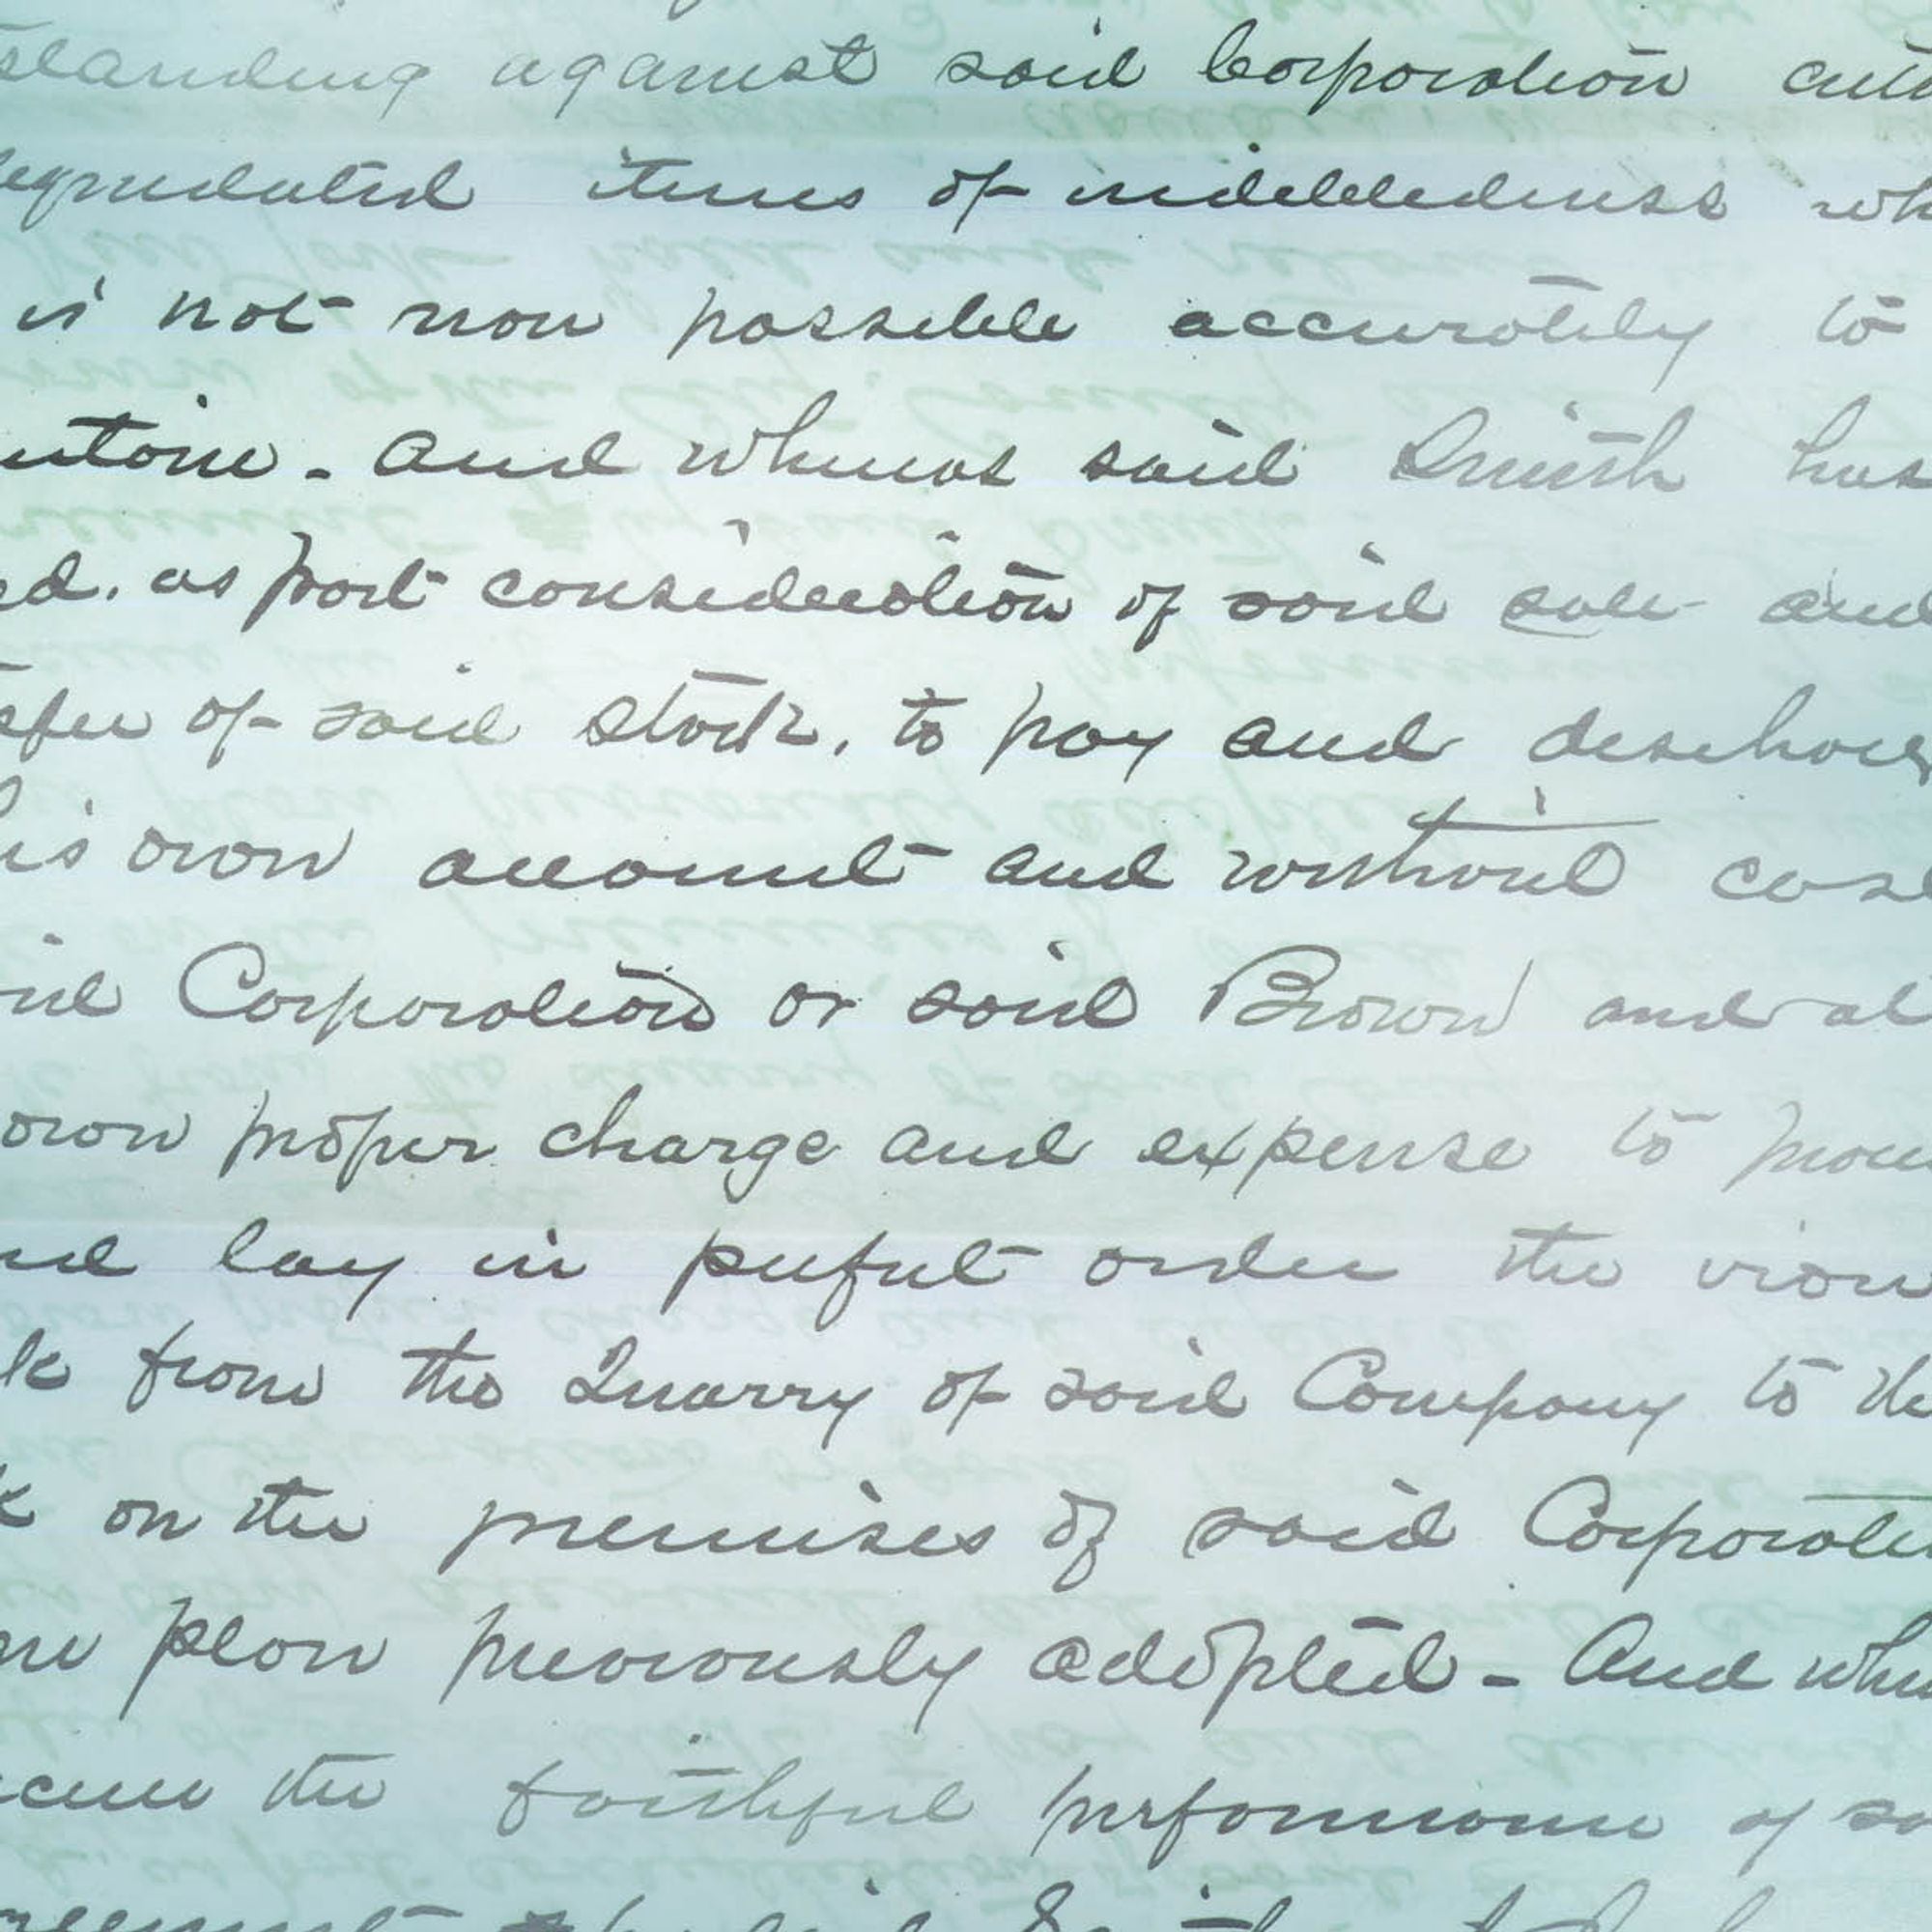 standing against said Corporation cert
legendated items of indebtedness wh
is not now possible accurately to
entain - And whereas said Smith has
ed, as part consideration of said sale and
sfer of said stock, to pay and discharg
his own account and without cost
aid Corporation or said Brown and at
own proper charge and expense to proc
nd lay in perfect order the iron
k from the Quarry of said Company to the
k on the premises of said Corporatio
me plan previously adopted - And whe
ecure the faithful performance of sa